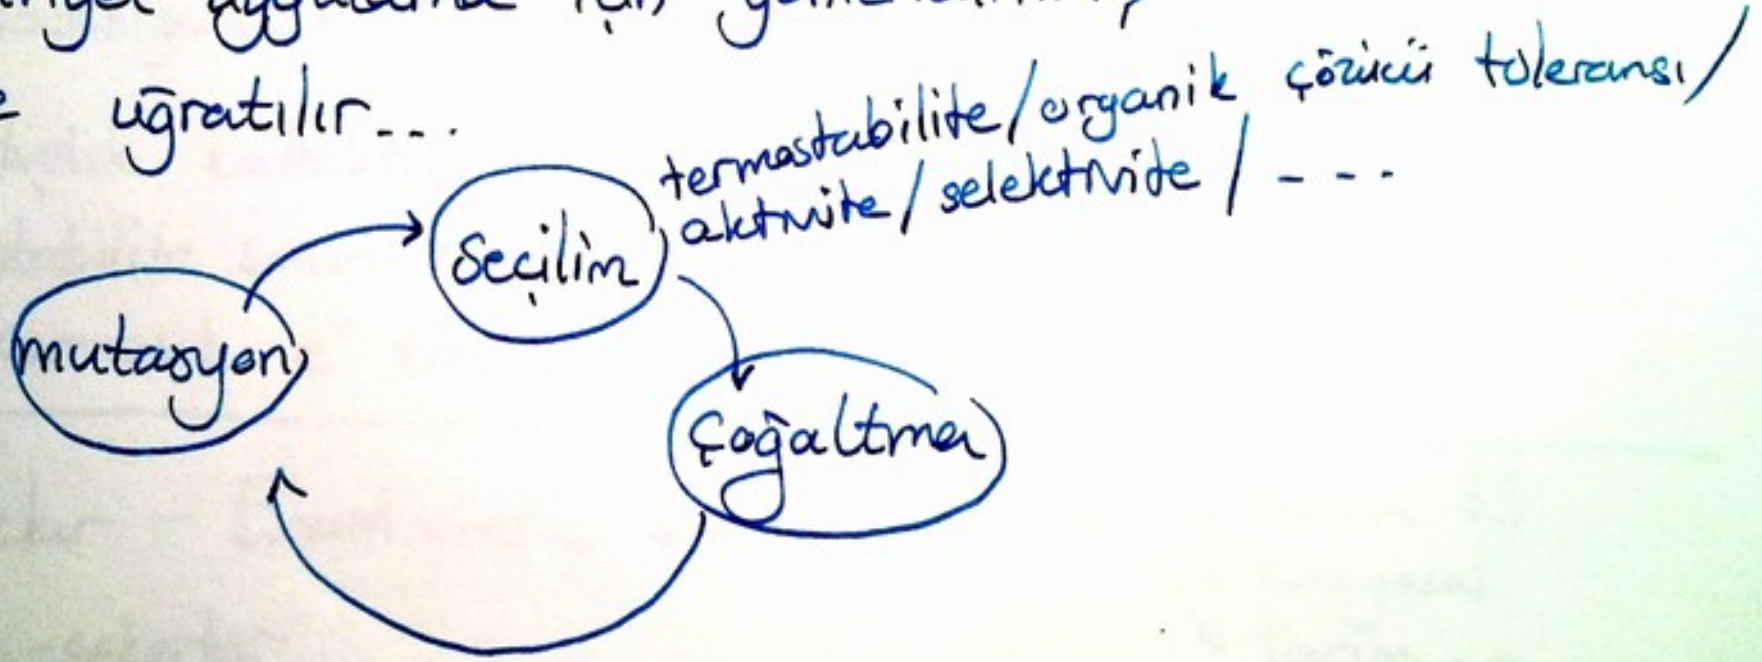 için
uğratılır...
termostabilite/organik çözücü toleransı/
aktivite/selektivite/---
Seçilim
mutasyon
Çoğaltma